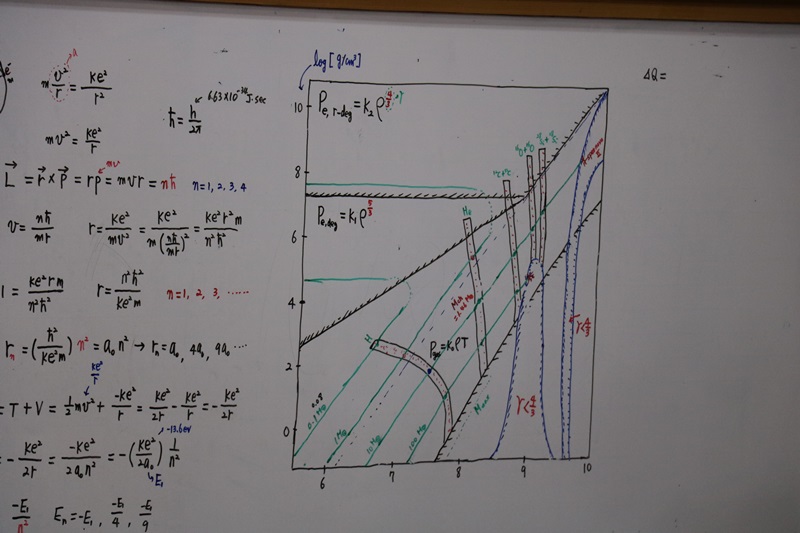 m v²/r = ke²/r²
mv² = ke²/r
ħ = h/2π
6.63×10⁻³⁴ J·sec
mv
L⃗ = r⃗ × p⃗ = rp = mvr = nħ n=1, 2, 3, 4
v = nħ/mr r = ke²/mv² = ke²/m(nħ/mr)² = ke²r²m/n²ħ²
1 = ke²rm/n²ħ² r = n²ħ²/ke²m n=1, 2, 3, ......
rₙ = (ħ²/ke²m) n² = a₀n² → rₙ = a₀, 4a₀, 9a₀ ...
ke²/r
= T + V = ½mv² + -ke²/r = ke²/2r - ke²/r = -ke²/2r
-13.6eV
- ke²/2r = -ke²/2a₀n² = -(ke²/2a₀) 1/n²
E₁
-E₁/n² Eₙ = -E₁, -E₁/4, -E₁/9
log [g/cm³]
10
8
6
4
2
0
6 7 8 9 10
Pe,r-deg = K₂ρ^4/3
Pe,deg = K₁ρ^5/3
Pgas = K₀ρT
H
He
0.08
0.1M⊙
1M⊙
10M⊙
100M⊙
r<4/3
r<4/3
ΔQ =